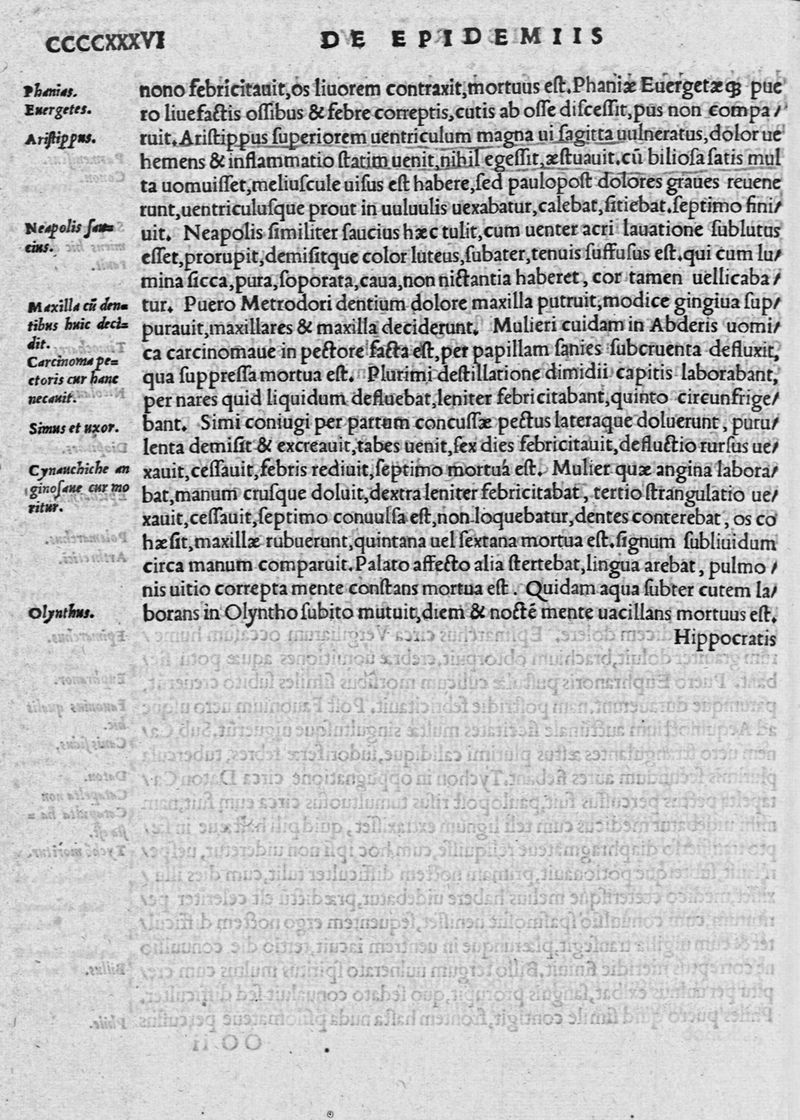 CCCCXXXVI DE EPIDEMIIS
Phanias.
Euergetes.
Aristippus.
Neapolis sau=
cius.
Maxilla cũ den=
tibus huic deci=
dit.
Carcinoma pe=
ctoris cur hanc
necauit.
Simus et uxor.
Cynanchiche an
ginosaue cur mo
ritur.
Olynthus.
nono febricitauit,os liuorem contraxit,mortuus eſt.Phaniæ Euergetæqꝫ pue
ro liuefactis oſſibus & febre correptis,cutis ab oſſe diſceſſit,pus non compa/
ruit.Ariſtippus ſuperiorem uentriculum magna ui ſagitta uulneratus,dolor ue
hemens & inflammatio ſtatim uenit,nihil egeſſit,æſtuauit.cũ bilioſa ſatis mul
ta uomuiſſet,meliuſcule uiſus eſt habere,ſed paulopoſt dolores graues reuene
runt,uentriculuſque prout in uuluulis uexabatur,calebat,ſitiebat.ſeptimo fini/
uit. Neapolis ſimiliter ſaucius hæc tulit,cum uenter acri lauatione ſublutus
eſſet,prorupit,demiſitque color luteus,ſubater,tenuis ſuffuſus eſt.qui cum lu/
mina ſicca,pura,ſoporata,caua,non nictantia haberet, cor tamen uellicaba/
tur. Puero Metrodori dentium dolore maxilla putruit,modice gingiua ſup/
purauit,maxillares & maxilla deciderunt. Mulieri cuidam in Abderis uomi/
ca carcinomaue in pectore facta eſt,per papillam ſanies ſubcruenta defluxit,
qua ſuppreſſa mortua eſt. Plurimi deſtillatione dimidii capitis laborabant,
per nares quid liquidum defluebat,leniter febricitabant,quinto circunfrige/
bant. Simi coniugi per partum concuſſæ pectus lateraque doluerunt, puru/
lenta demiſit & excreauit,tabes uenit,ſex dies febricitauit,defluctio rurſus ue/
xauit,ceſſauit,febris rediuit,ſeptimo mortua eſt. Mulier quæ angina labora/
bat,manum cruſque doluit,dextra leniter febricitabat, tertio ſtrangulatio ue/
xauit,ceſſauit,ſeptimo conuulſa eſt,non loquebatur,dentes conterebat, os co
hæſit,maxillæ rubuerunt,quintana uel ſextana mortua eſt.ſignum ſubliuidum
circa manum comparuit.Palato affecto alia ſtertebat,lingua arebat, pulmo /
nis uitio correpta mente conſtans mortua eſt. Quidam aqua ſubter cutem la/
borans in Olyntho ſubito mutuit,diem & nocté mente uacillans mortuus eſt.
Hippocratis